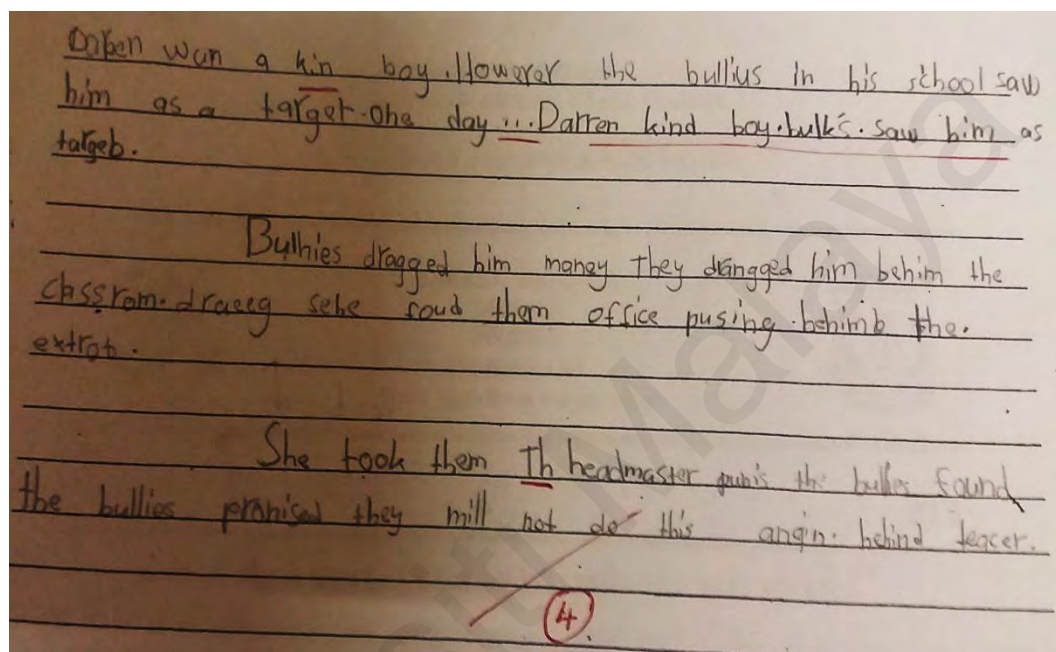 Darren wan a kin boy. However the bullius in his school saw
him as a target. One day ... Darren kind boy. bulk's. saw him as
targeb.
Bulhies dragged him maney they drangged him behim the
classrom. draeeg sehe foud them office pusing. behimb the.
extrot.
She took them Th headmaster punis the bullies found
the bullies promised they mill not do this angin. behind teacer.
4